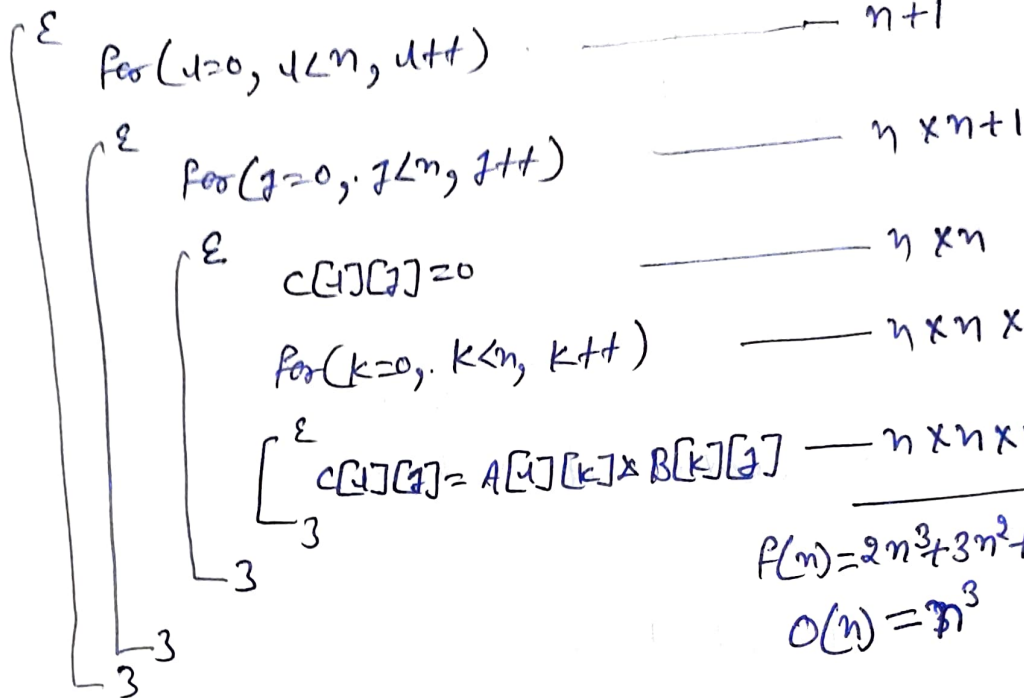 {
for(i=0, i<n, i++) —— n+1
{
for(j=0, j<n, j++) —— n×n+1
{
C[i][j]=0 —— n×n
for(k=0, k<n, k++) —— n×n×
{
C[i][j]= A[i][k]*B[k][j] —— n×n×
}
f(n)=2n³+3n²+
}
O(n) = n³
}
}